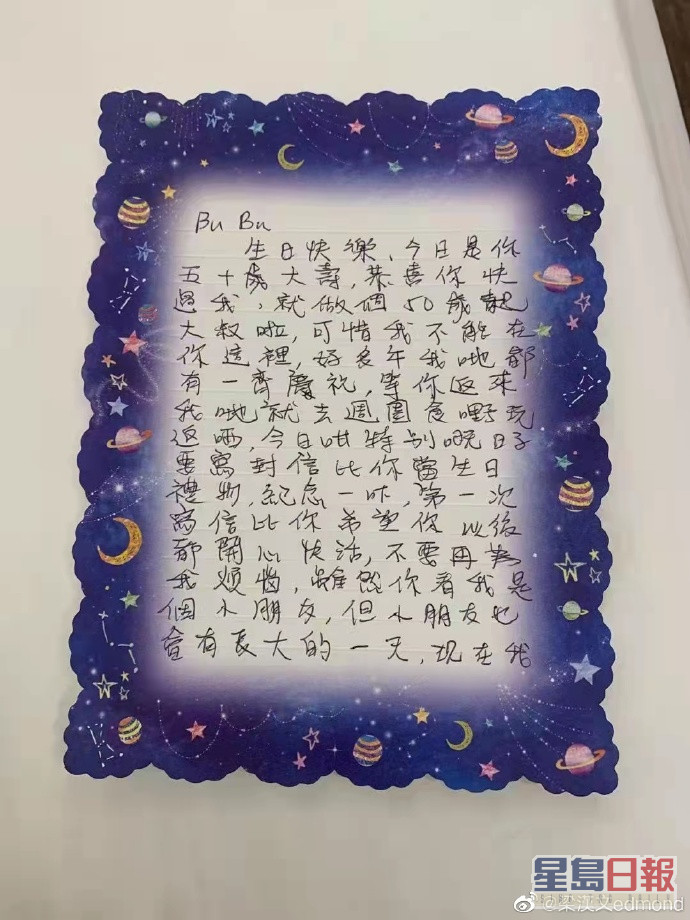 Bu Bu
生日快樂，今日是你
五十歲大壽，恭喜你快
過我，就做個50歲
大叔啦，可惜我不能在
你這裡，好多年我哋都
有一齊慶祝，等你返來
我哋就去週圍食嘢玩
返晒，今日咁特別嘅日子
要寫封信比你當生日
禮物，紀念一吓，第一次
寫信比你希望你以後
都開心快活，不要再為
我煩惱，雖然你看我是
個小朋友，但小朋友也
會有長大的一天，現在我
星島日報
@梁漢文edmond